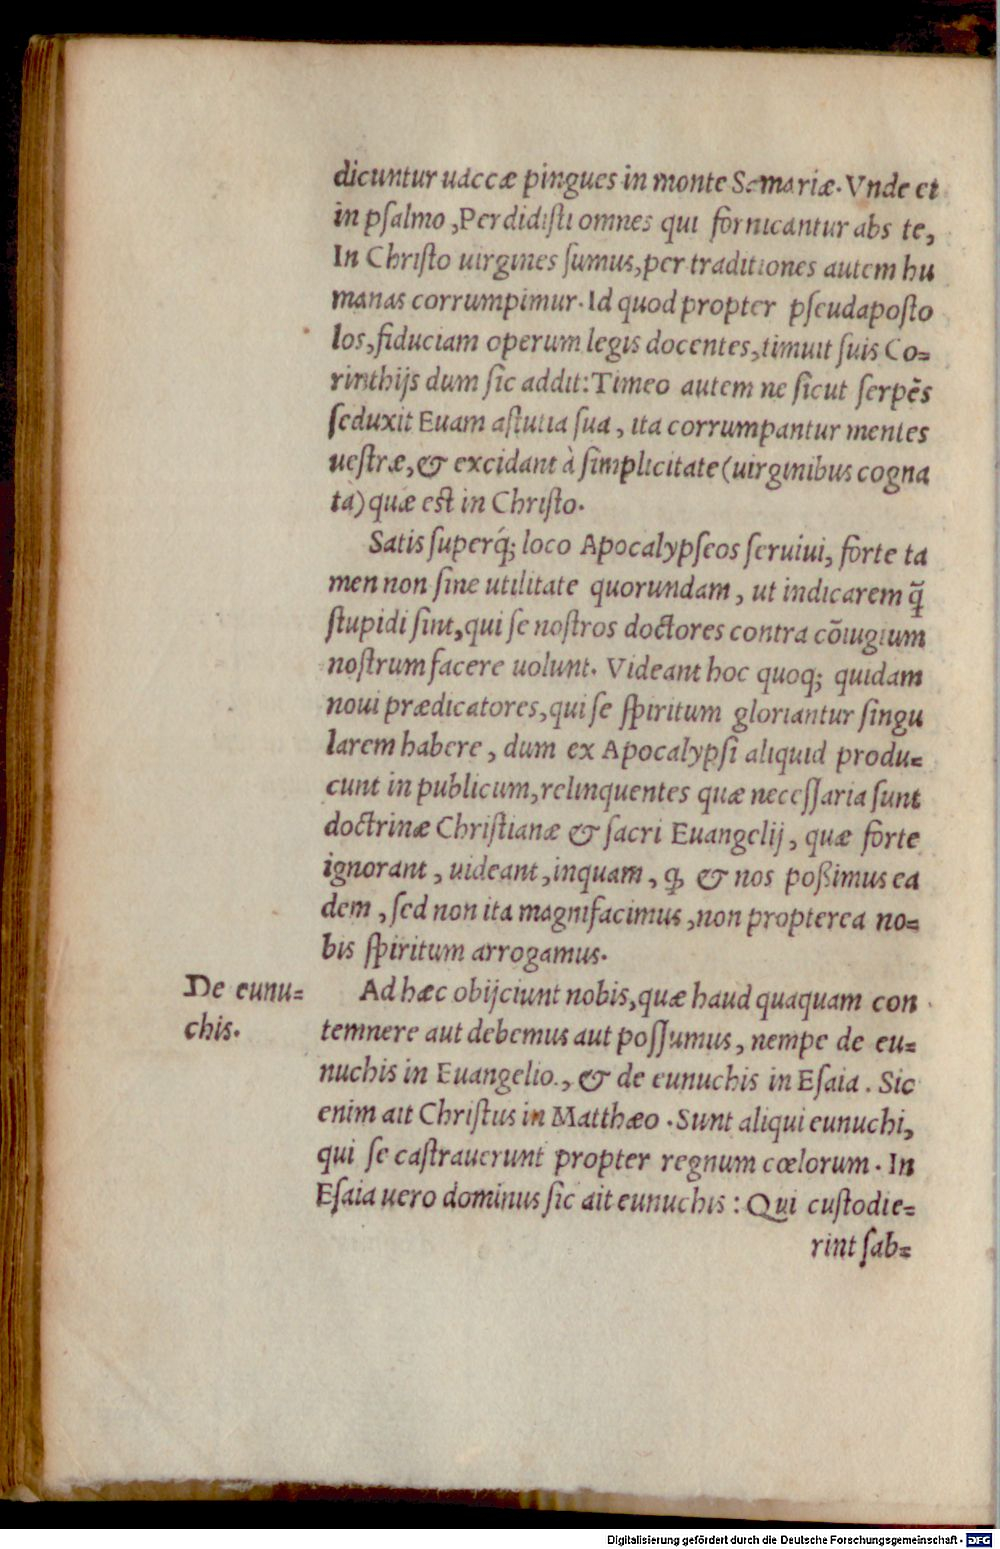 dicuntur uaccæ pingues in monte Samariæ. Vnde et
in pſalmo, Perdidiſti omnes qui fornicantur abs te,
In Chriſto uirgines ſumus, per traditiones autem hu
manas corrumpimur. Id quod propter pſeudapoſto
los, fiduciam operum legis docentes, timuit ſuis Co=
rinthijs dum ſic addit: Timeo autem ne ſicut ſerpẽs
ſeduxit Euam aſtutia ſua, ita corrumpantur mentes
ueſtræ, & excidant à ſimplicitate (uirginibus cogna
ta) quæ eſt in Chriſto.
Satis ſuperq́; loco Apocalypſeos ſeruiui, forte ta
men non ſine utilitate quorundam, ut indicarem q̃
ſtupidi ſint, qui ſe noſtros doctores contra cõiugium
noſtrum facere uolunt. Videant hoc quoq; quidam
noui prædicatores, qui ſe ſpiritum gloriantur ſingu
larem habere, dum ex Apocalypſi aliquid produ=
cunt in publicum, relinquentes quæ neceſſaria ſunt
doctrinæ Chriſtianæ & ſacri Euangelij, quæ forte
ignorant, uideant, inquam, ꝙ & nos poßimus ea
dem, ſed non ita magnifacimus, non propterea no=
bis ſpiritum arrogamus.
De eunu=
chis.
Ad hæc obijciunt nobis, quæ haud quaquam con
temnere aut debemus aut poſſumus, nempe de eu=
nuchis in Euangelio., & de eunuchis in Eſaia. Sic
enim ait Chriſtus in Matthæo. Sunt aliqui eunuchi,
qui ſe caſtrauerunt propter regnum cœlorum. In
Eſaia uero dominus ſic ait eunuchis: Qui cuſtodie=
rint ſab=
Digitalisierung gefördert durch die Deutsche Forschungsgemeinschaft - DFG